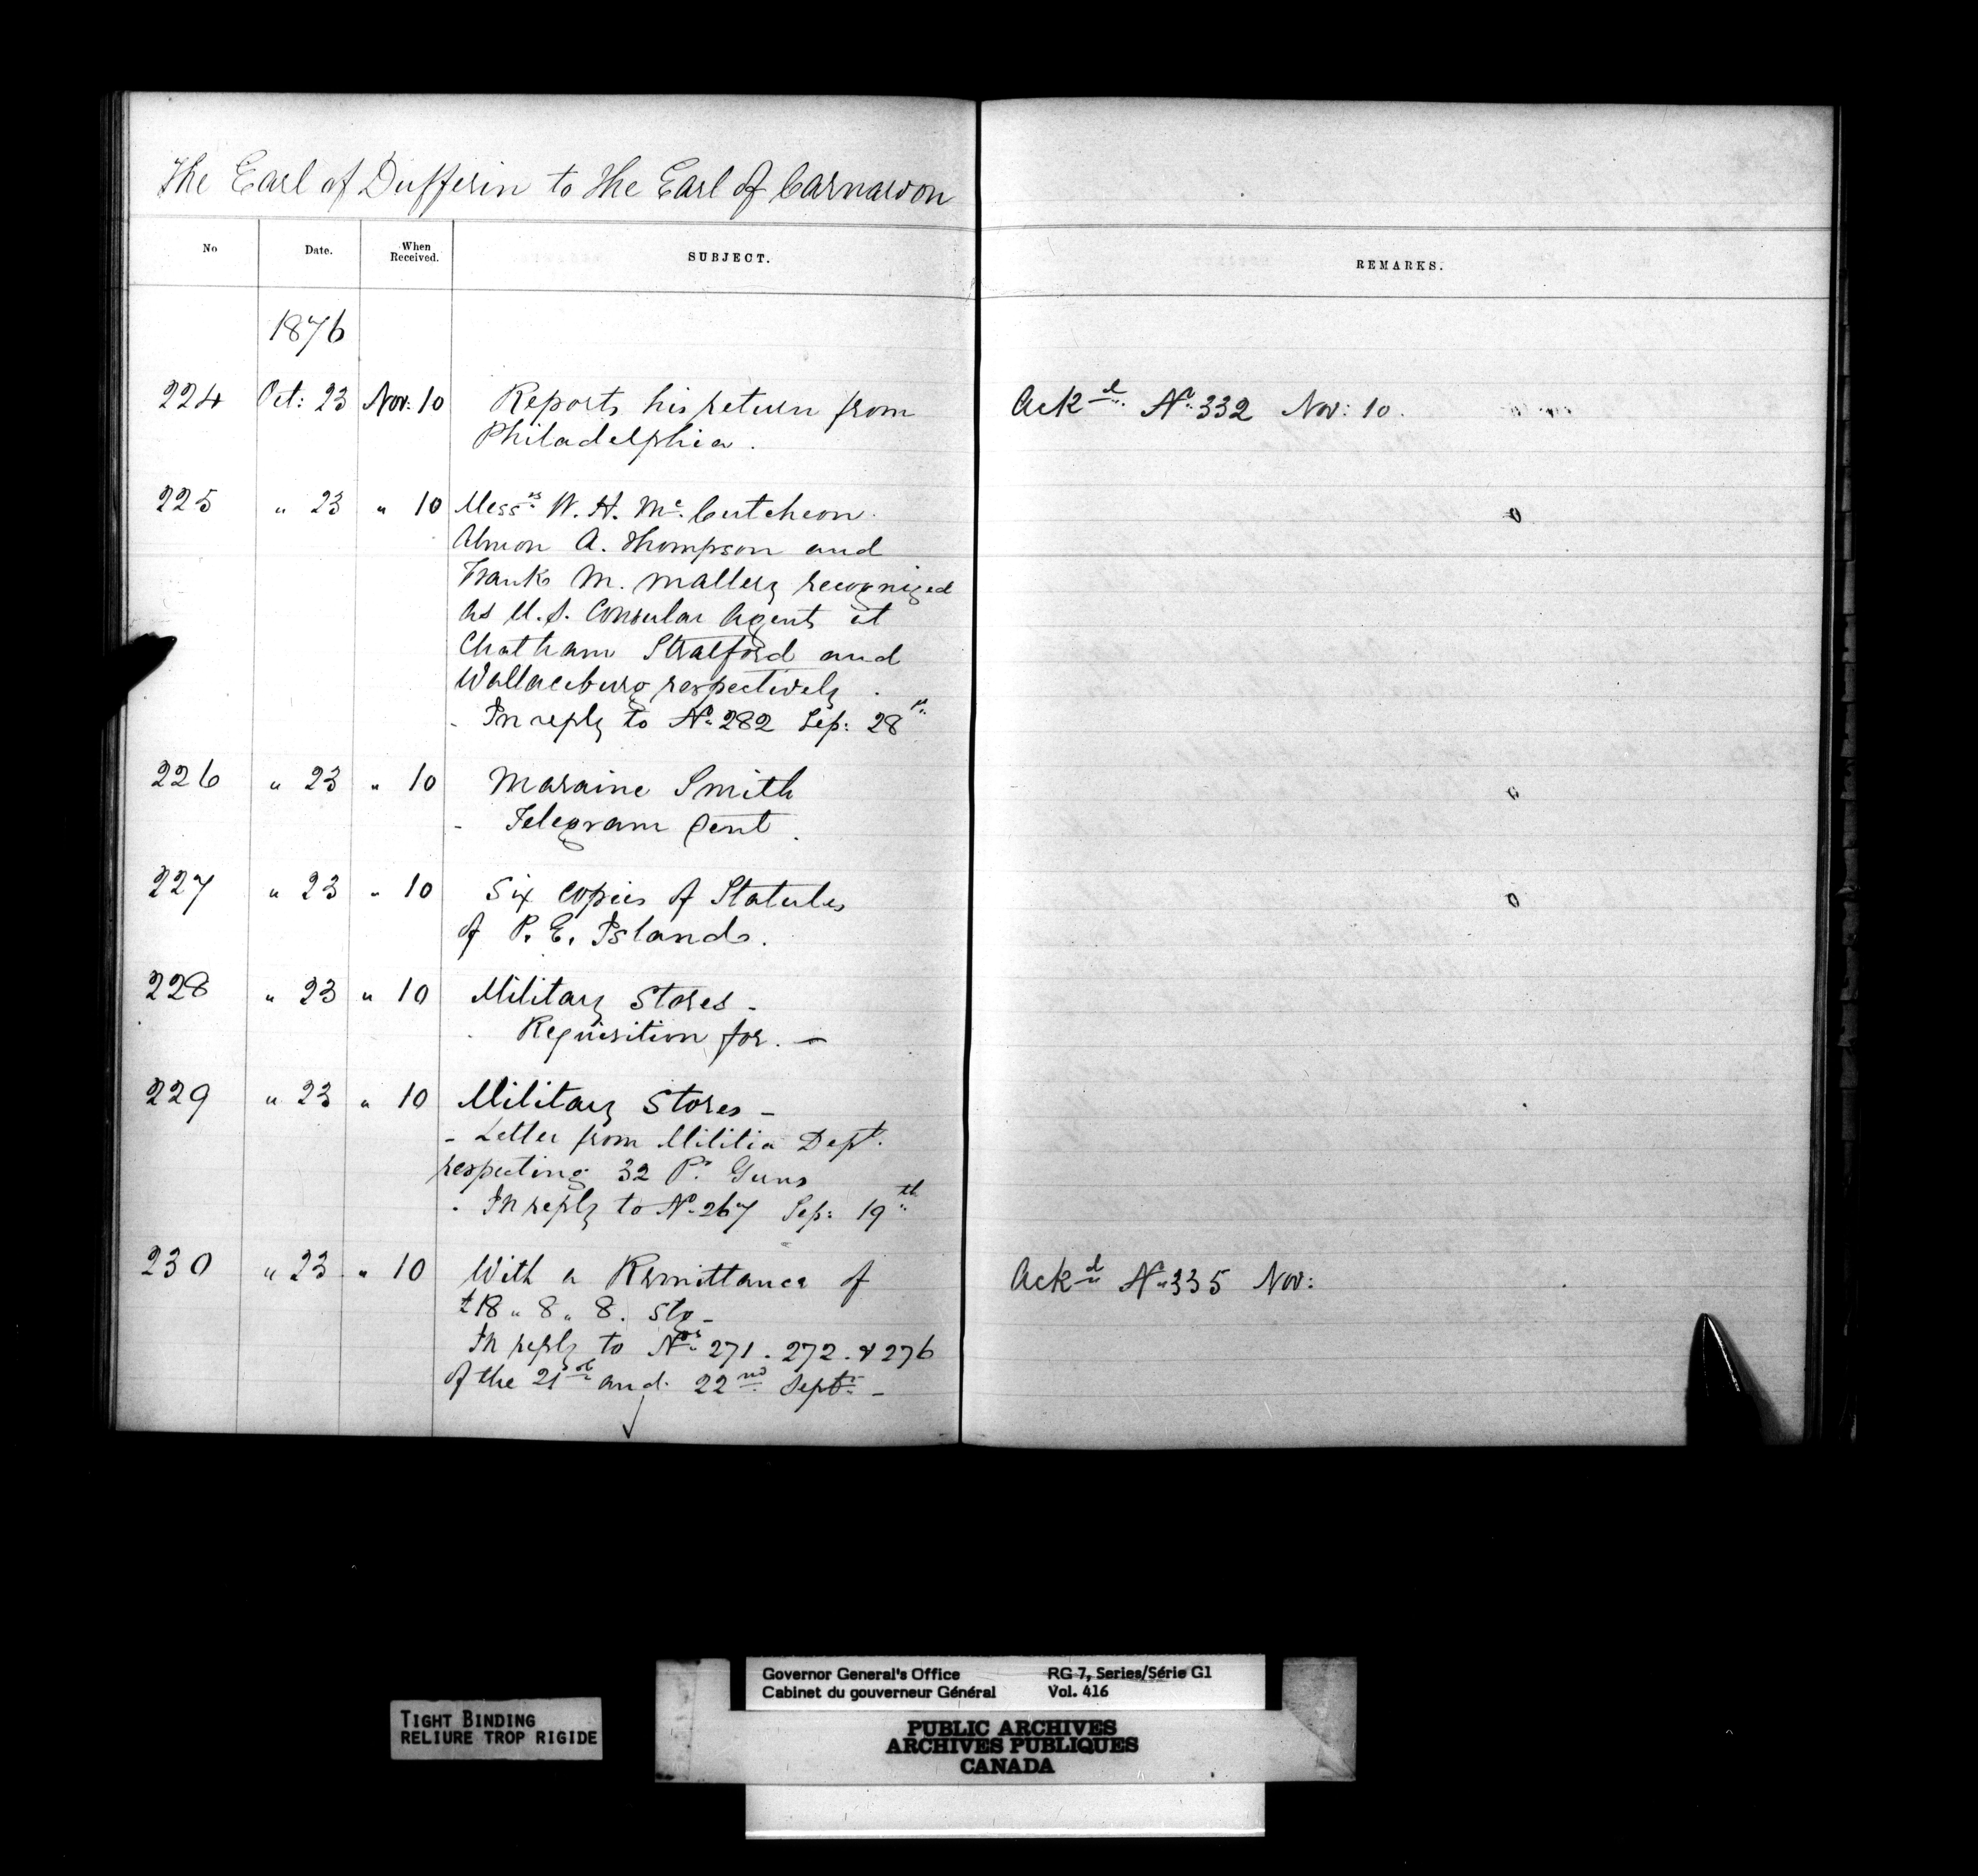 The Earl of Dufferin to the Earl of Carnarvon
No Date. When Received. SUBJECT. REMARKS.
1876
224 Oct: 23 Nov: 10 Reports his return from Ackd. No. 332 Nov: 10.
Philadelphia.
225 " 23 " 10 Messrs W. H. Mc.Cutcheon. 0
Almon A. Thompson and
Frank M. Mallery recognized
as U.S. Consular Agents at
Chatham Stratford and
Wallaceburg respectively.
- In reply to No. 282 Sep: 28th.
226 " 23 " 10 Maraine Smith 0
- Telegram sent.
227 " 23 " 10 Six copies of Statutes 0
of P. E. Islands.
228 " 23 " 10 Military Stores -
Requisition for. -
229 " 23 " 10 Military Stores -
- Letter from Militia Dept.
respecting 32 Pr. Guns
. In reply to No. 267 Sep: 19th.
230 " 23 " 10 With a Remittance of Ackd No. 335 Nov:
£18 " 8 " 8. Stg -
In reply to Nos. 271. 272. & 276
of the 21st and 22nd Sept. -
Governor General's Office RG 7, Series/Série G1
Cabinet du gouverneur Général Vol. 416
TIGHT BINDING
RELIURE TROP RIGIDE
PUBLIC ARCHIVES
ARCHIVES PUBLIQUES
CANADA